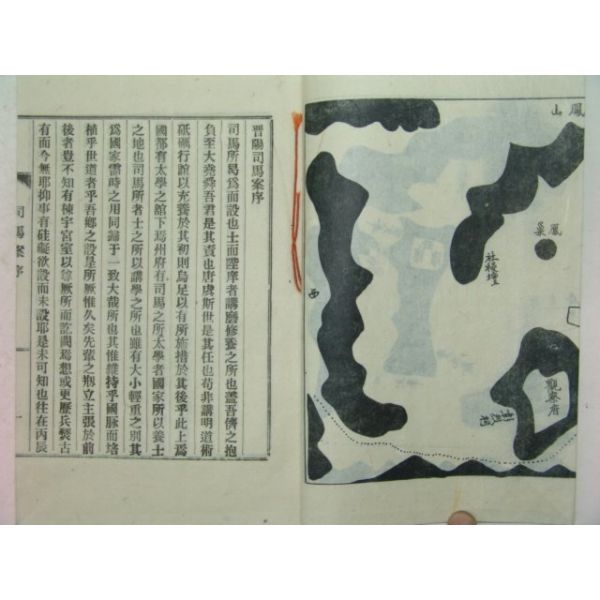 鳳山
鳳巢
社稷壇
西
觀察府
晋陽司馬案序
司馬所曷爲而設也士而陞庠者講磨修養之所也盖吾儕之抱
負至大堯舜吾君是其責也唐虞斯世是其任也苟非講明道術
砥礪行誼以充養於其初則烏足以有所施措於其後乎此上焉
國都有太學之舘下焉州府有司馬之所太學者國家所以養士
之地也司馬所者士之所以講學之所也雖有大小輕重之別其
爲國家需時之用同歸于一致大哉所也其惟維持乎國脉而培
植乎世道者乎吾鄕之設是所厥惟久矣先輩之刱立主張於前
後者豈不知有棟宇宮室以等厥所而訖闃焉想或更歷兵燹古
有而今無耶抑事有硅礙欲設而未設耶是未可知也往在丙辰
司馬案序
一